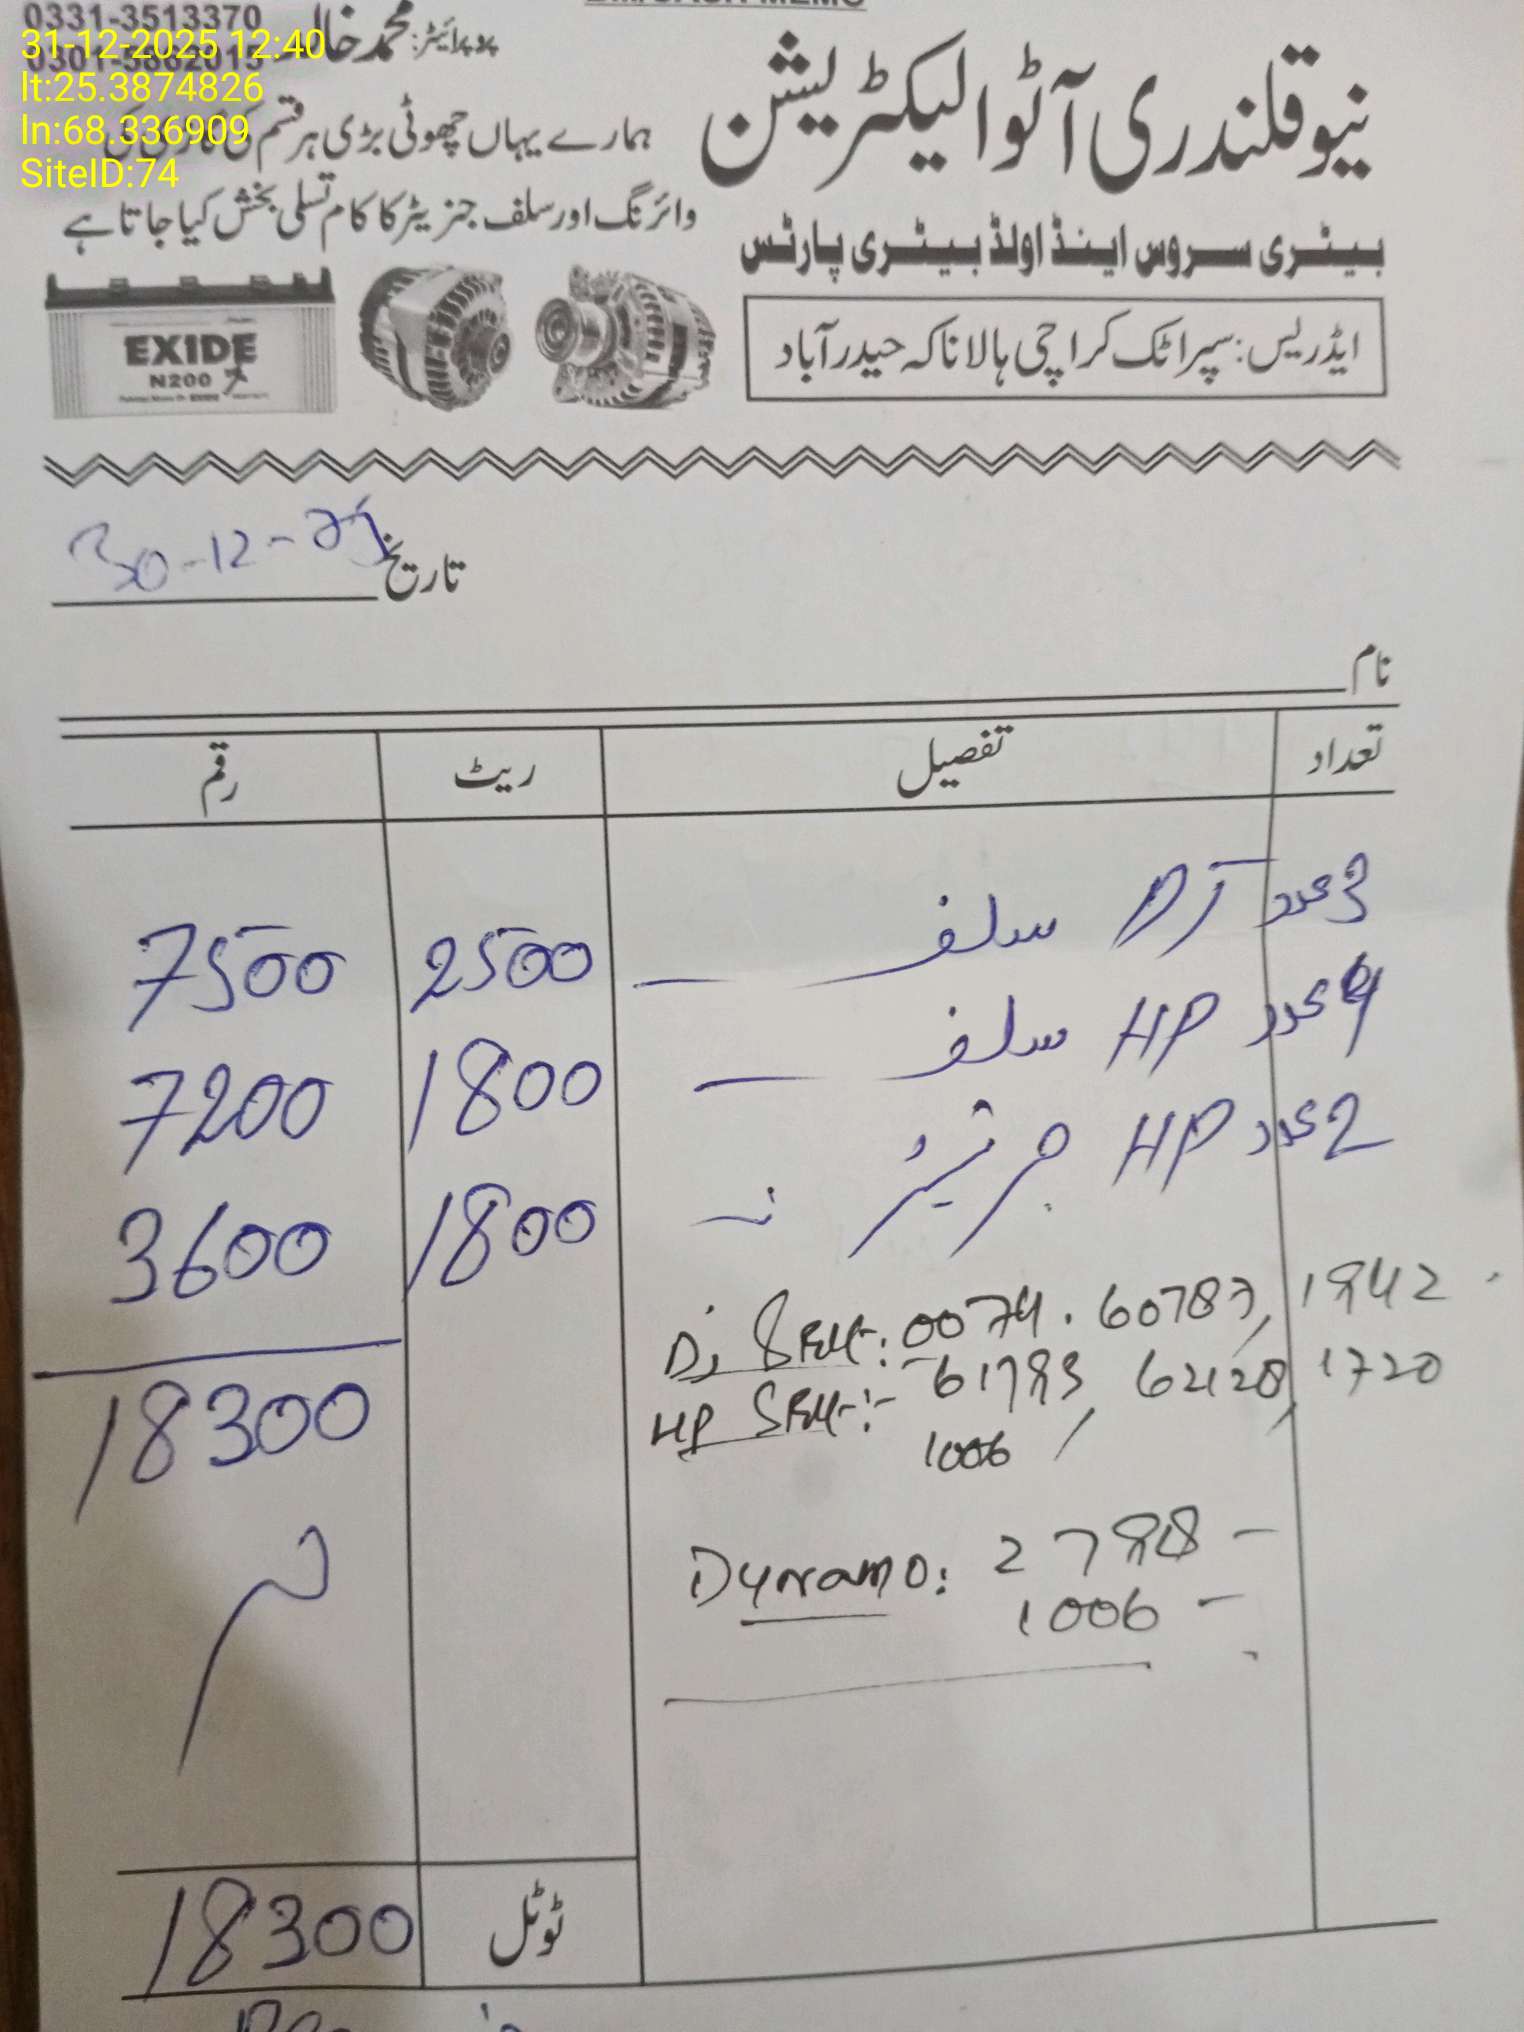 BILL/CASH MEMO
0331-3513370
31-12-2025 12:40
lt:25.3874826
ln:68.336909
SiteID:74
پروپرائیٹر: محمد خالد
نیو قلندری آٹو الیکٹریشن
ہمارے یہاں چھوٹی بڑی ہر قسم کی گاڑی کی
وائرنگ اور سلف جنریٹر کا کام تسلی بخش کیا جاتا ہے
بیٹری سروس اینڈ اولڈ بیٹری پارٹس
ایڈریس: سپر اٹک کراچی ہالا ناکہ حیدرآباد
EXIDE
N200
تاریخ 30-12-25
نام
تعداد تفصیل ریٹ رقم
3 عدد DJ سلف 2500 7500
4 عدد HP سلف 1800 7200
2 عدد HP جنریٹر 1800 3600
Dj Self: 0074. 60787, 1942
18300
HP Self:- 61783, 62128, 1720
1006
Dynamo: 2788 -
1006 -
ٹوٹل 18300